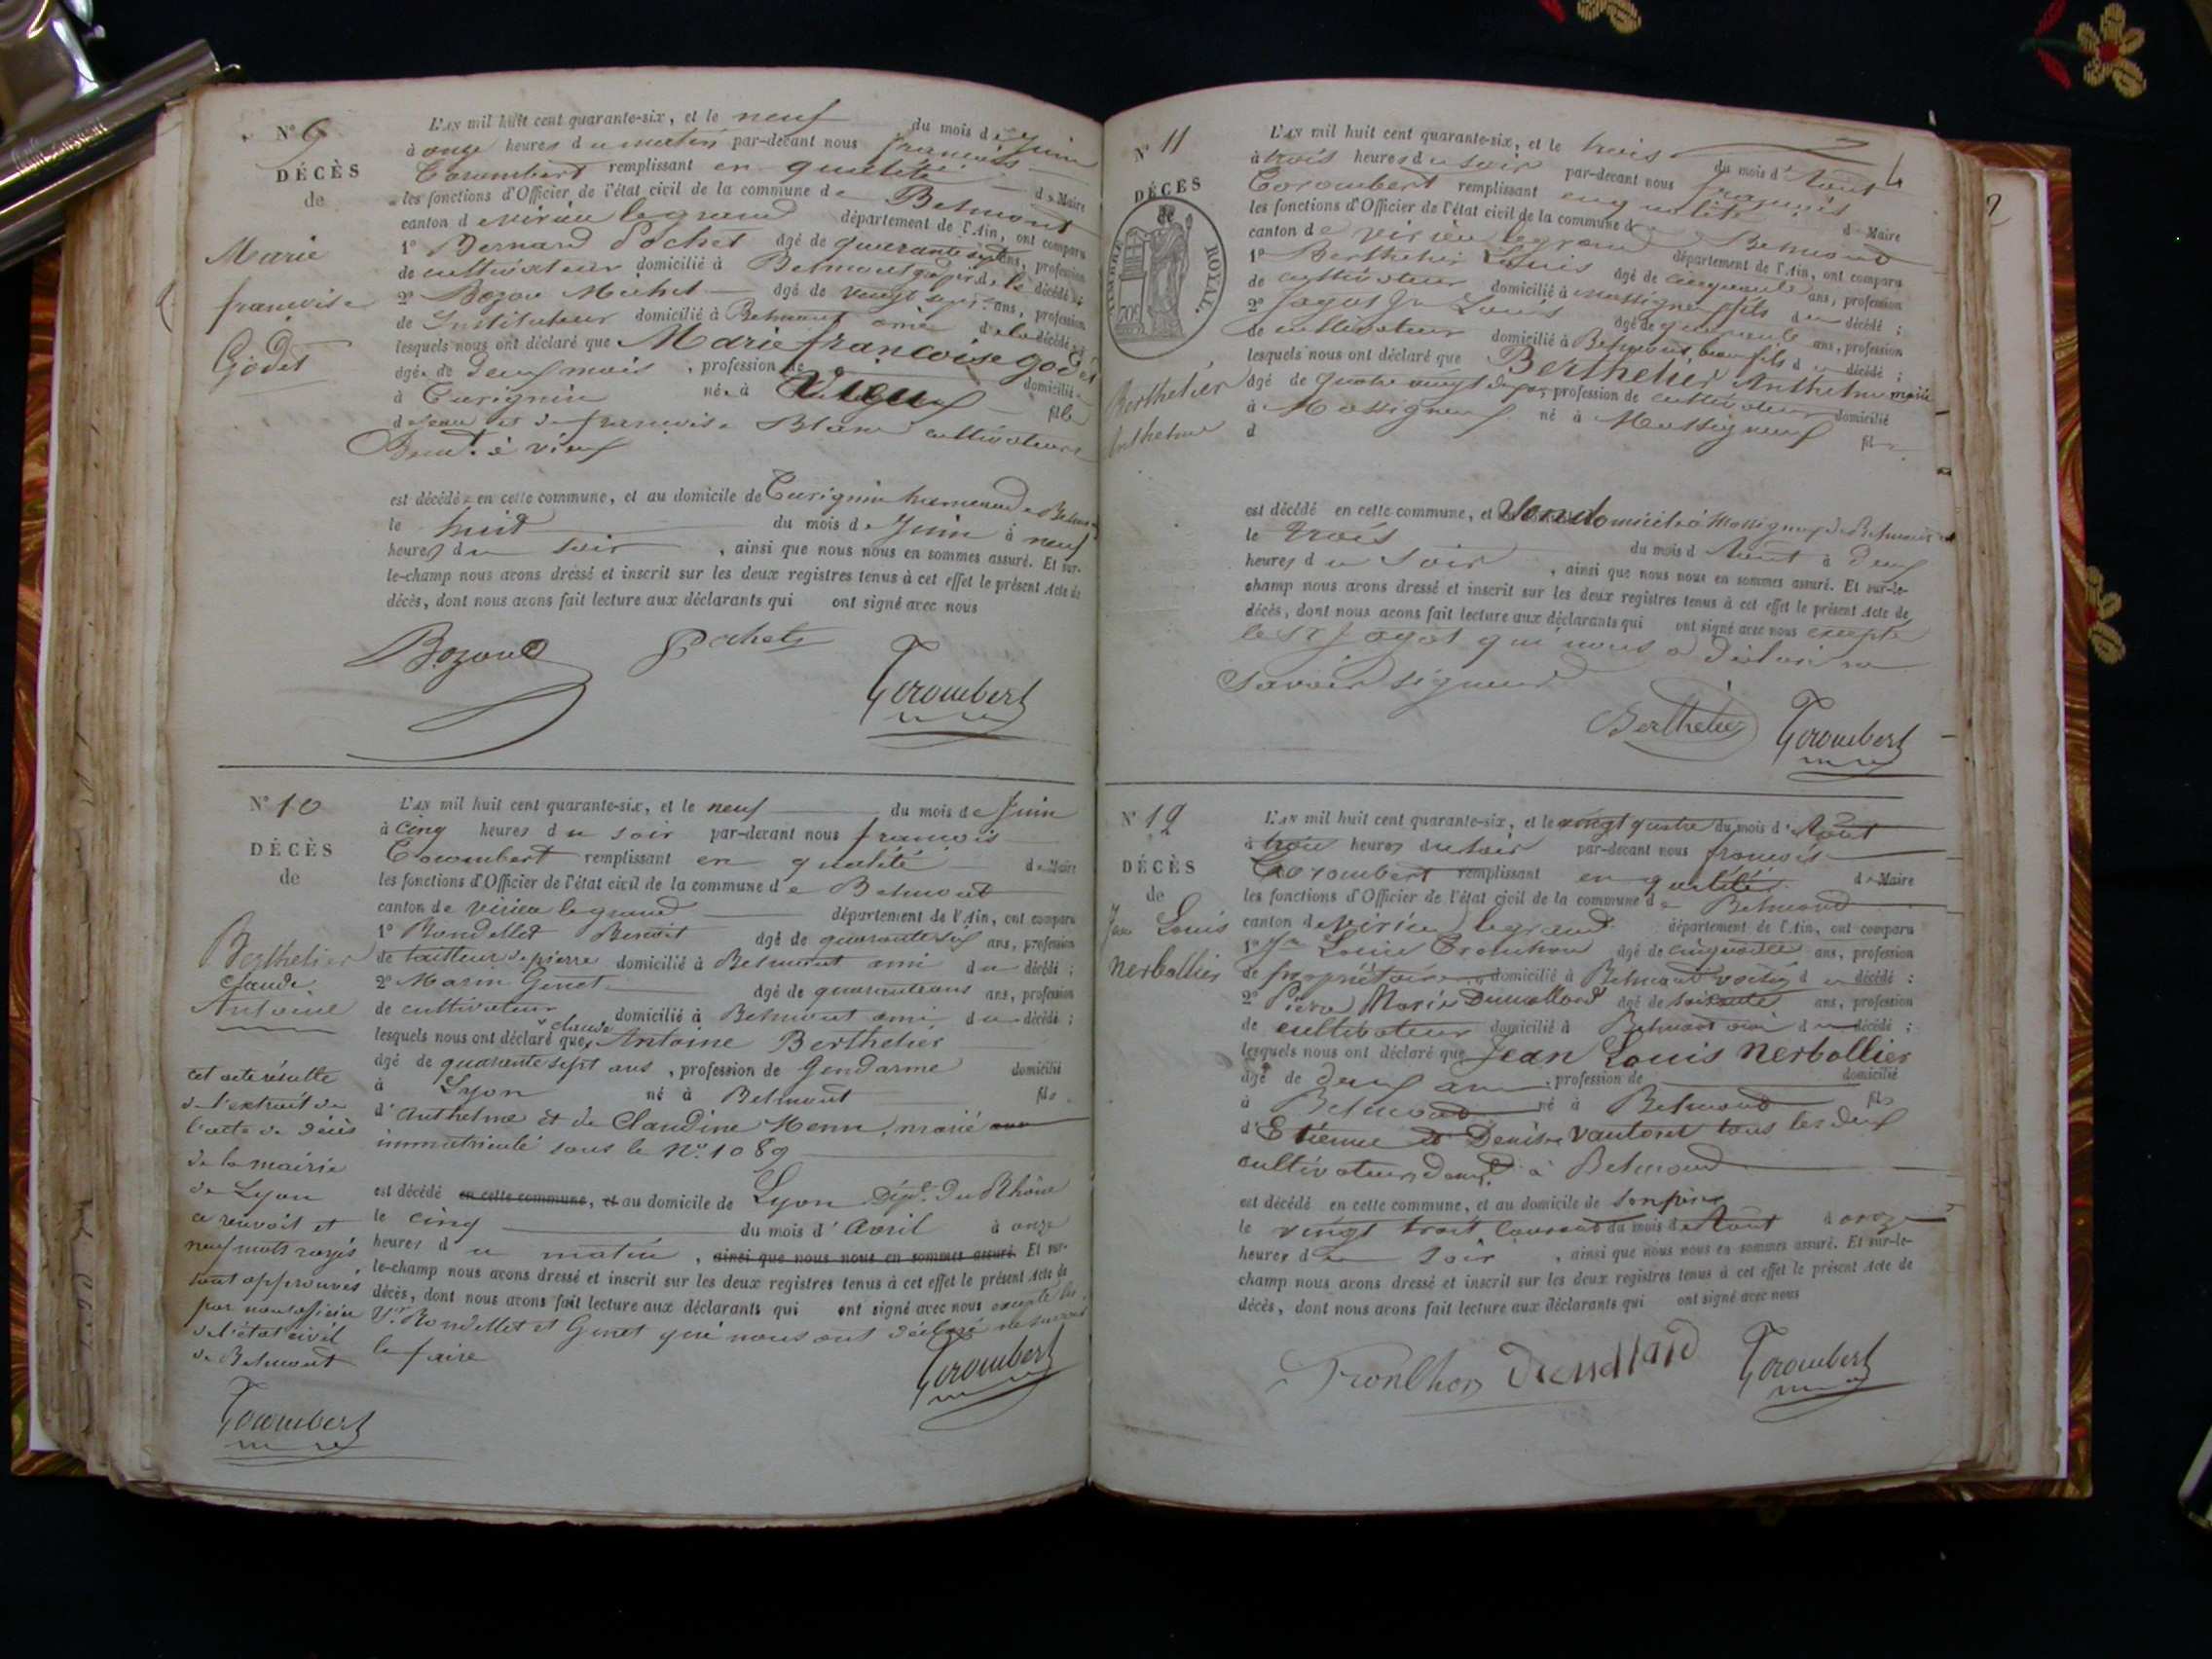 N° 9
DÉCÈS
de
Marie
francoise
Godet
L'AN mil huit cent quarante-six, et le neuf du mois de Juin
à onze heures du matin par-devant nous francois
Corombert remplissant en qualité de Maire
les fonctions d'Officier de l'état civil de la commune de Belmont
canton de virieu legrand département de l'Ain, ont comparu
1° Bernard Pochet âgé de quarante sept ans, profession
de cultivateur domicilié à Belmont de la décédée
2° Bozon Michel âgé de vingt sept ans, profession
de Instituteur domicilié à Belmont ami de la décédée
lesquels nous ont déclaré que Marie francoise godet
âgée de deux mois, profession de domiciliée
à Curignin née à Vieu fille
de Jean et de francoise Blanc cultivateurs
Demt. à vieu
est décédée en cette commune, et au domicile de Curignin hameau de Belmont
le huit du mois de Juin à neuf
heures du soir, ainsi que nous nous en sommes assuré. Et sur-
le-champ nous avons dressé et inscrit sur les deux registres tenus à cet effet le présent Acte de
décès, dont nous avons fait lecture aux déclarants qui ont signé avec nous
Bozon Pochet
Corombert
N° 10
DÉCÈS
de
Berthelier
Claude
Antoine
cet acte résulte
de l'extrait de
l'acte de décès
de la mairie
de Lyon
ce renvoit et
neuf mots rayés
sont approuvés
par nous officier
de l'état civil
de Belmont
Corombert
L'AN mil huit cent quarante-six, et le neuf du mois de Juin
à cinq heures du soir par-devant nous francois
Corombert remplissant en qualité de Maire
les fonctions d'Officier de l'état civil de la commune de Belmont
canton de virieu legrand département de l'Ain, ont comparu
1° Rondellet Benoit âgé de quarante six ans, profession
de tailleur de pierre domicilié à Belmont ami du décédé;
2° Marin Genet âgé de quarante ans ans, profession
de cultivateur domicilié à Belmont ami du décédé;
lesquels nous ont déclaré que claude Antoine Berthelier
âgé de quarante sept ans, profession de Gendarme domicilié
à Lyon né à Belmont fils
d'Anthelme et de Claudine Henn, marié
immatriculé sous le N° 1089
est décédé en cette commune, et au domicile de Lyon Dépt. du Rhône
le cinq du mois d'Avril à onze
heures du matin, ainsi que nous nous en sommes assuré. Et sur-
le-champ nous avons dressé et inscrit sur les deux registres tenus à cet effet le présent Acte de
décès, dont nous avons fait lecture aux déclarants qui ont signé avec nous excepté les
Srs Rondellet et Genet qui nous ont déclaré ne savoir
le faire
Corombert
N° 11
DÉCÈS
de
TIMBRE ROYAL.
Berthelier
Anthelme
L'AN mil huit cent quarante-six, et le trois du mois d'Aout
à trois heures du soir par-devant nous francois
Corombert remplissant en qualité de Maire
les fonctions d'Officier de l'état civil de la commune de Belmont
canton de virieu legrand département de l'Ain, ont comparu
1° Berthelier Louis âgé de cinquante ans, profession
de cultivateur domicilié à Massigneu fils du décédé;
2° Jagot Jn Louis âgé de quarante ans, profession
de cultivateur domicilié à Belmont, beau fils du décédé;
lesquels nous ont déclaré que Berthelier Anthelme marié
âgé de quatre vingt deux ans, profession de cultivateur domicilié
à Massigneux né à Massigneux fils
d
est décédé en cette commune, et son domicile à Massigneux de Belmont
le trois du mois d'Aout à deux
heures du soir, ainsi que nous nous en sommes assuré. Et sur-le-
champ nous avons dressé et inscrit sur les deux registres tenus à cet effet le présent Acte de
décès, dont nous avons fait lecture aux déclarants qui ont signé avec nous excepté
le Sr Jagot qui nous a déclaré ne
savoir signer
Berthelier Corombert
N° 12
DÉCÈS
de
Jean Louis
Nerbollier
L'AN mil huit cent quarante-six, et le vingt quatre du mois d'Août
à trois heures du soir par-devant nous francois
Corombert remplissant en qualité de Maire
les fonctions d'Officier de l'état civil de la commune de Belmont
canton de Virieu legrand département de l'Ain, ont comparu
1° Jn Louis Tronchon âgé de cinquante ans, profession
de propriétaire domicilié à Belmont voisin du décédé;
2° Pierre Marie Dumollard âgé de soixante ans, profession
de cultivateur domicilié à Belmont ami du décédé;
lesquels nous ont déclaré que Jean Louis Nerbollier
âgé de deux ans, profession de domicilié
à Belmont né à Belmont fils
d'Etienne et Denise Vautoret tous les deux
cultivateurs demt. à Belmont
est décédé en cette commune, et au domicile de son père
le vingt trois courant du mois de Aout à onze
heures du soir, ainsi que nous nous en sommes assuré. Et sur-le-
champ nous avons dressé et inscrit sur les deux registres tenus à cet effet le présent Acte de
décès, dont nous avons fait lecture aux déclarants qui ont signé avec nous
Tronchon Dumollard Corombert